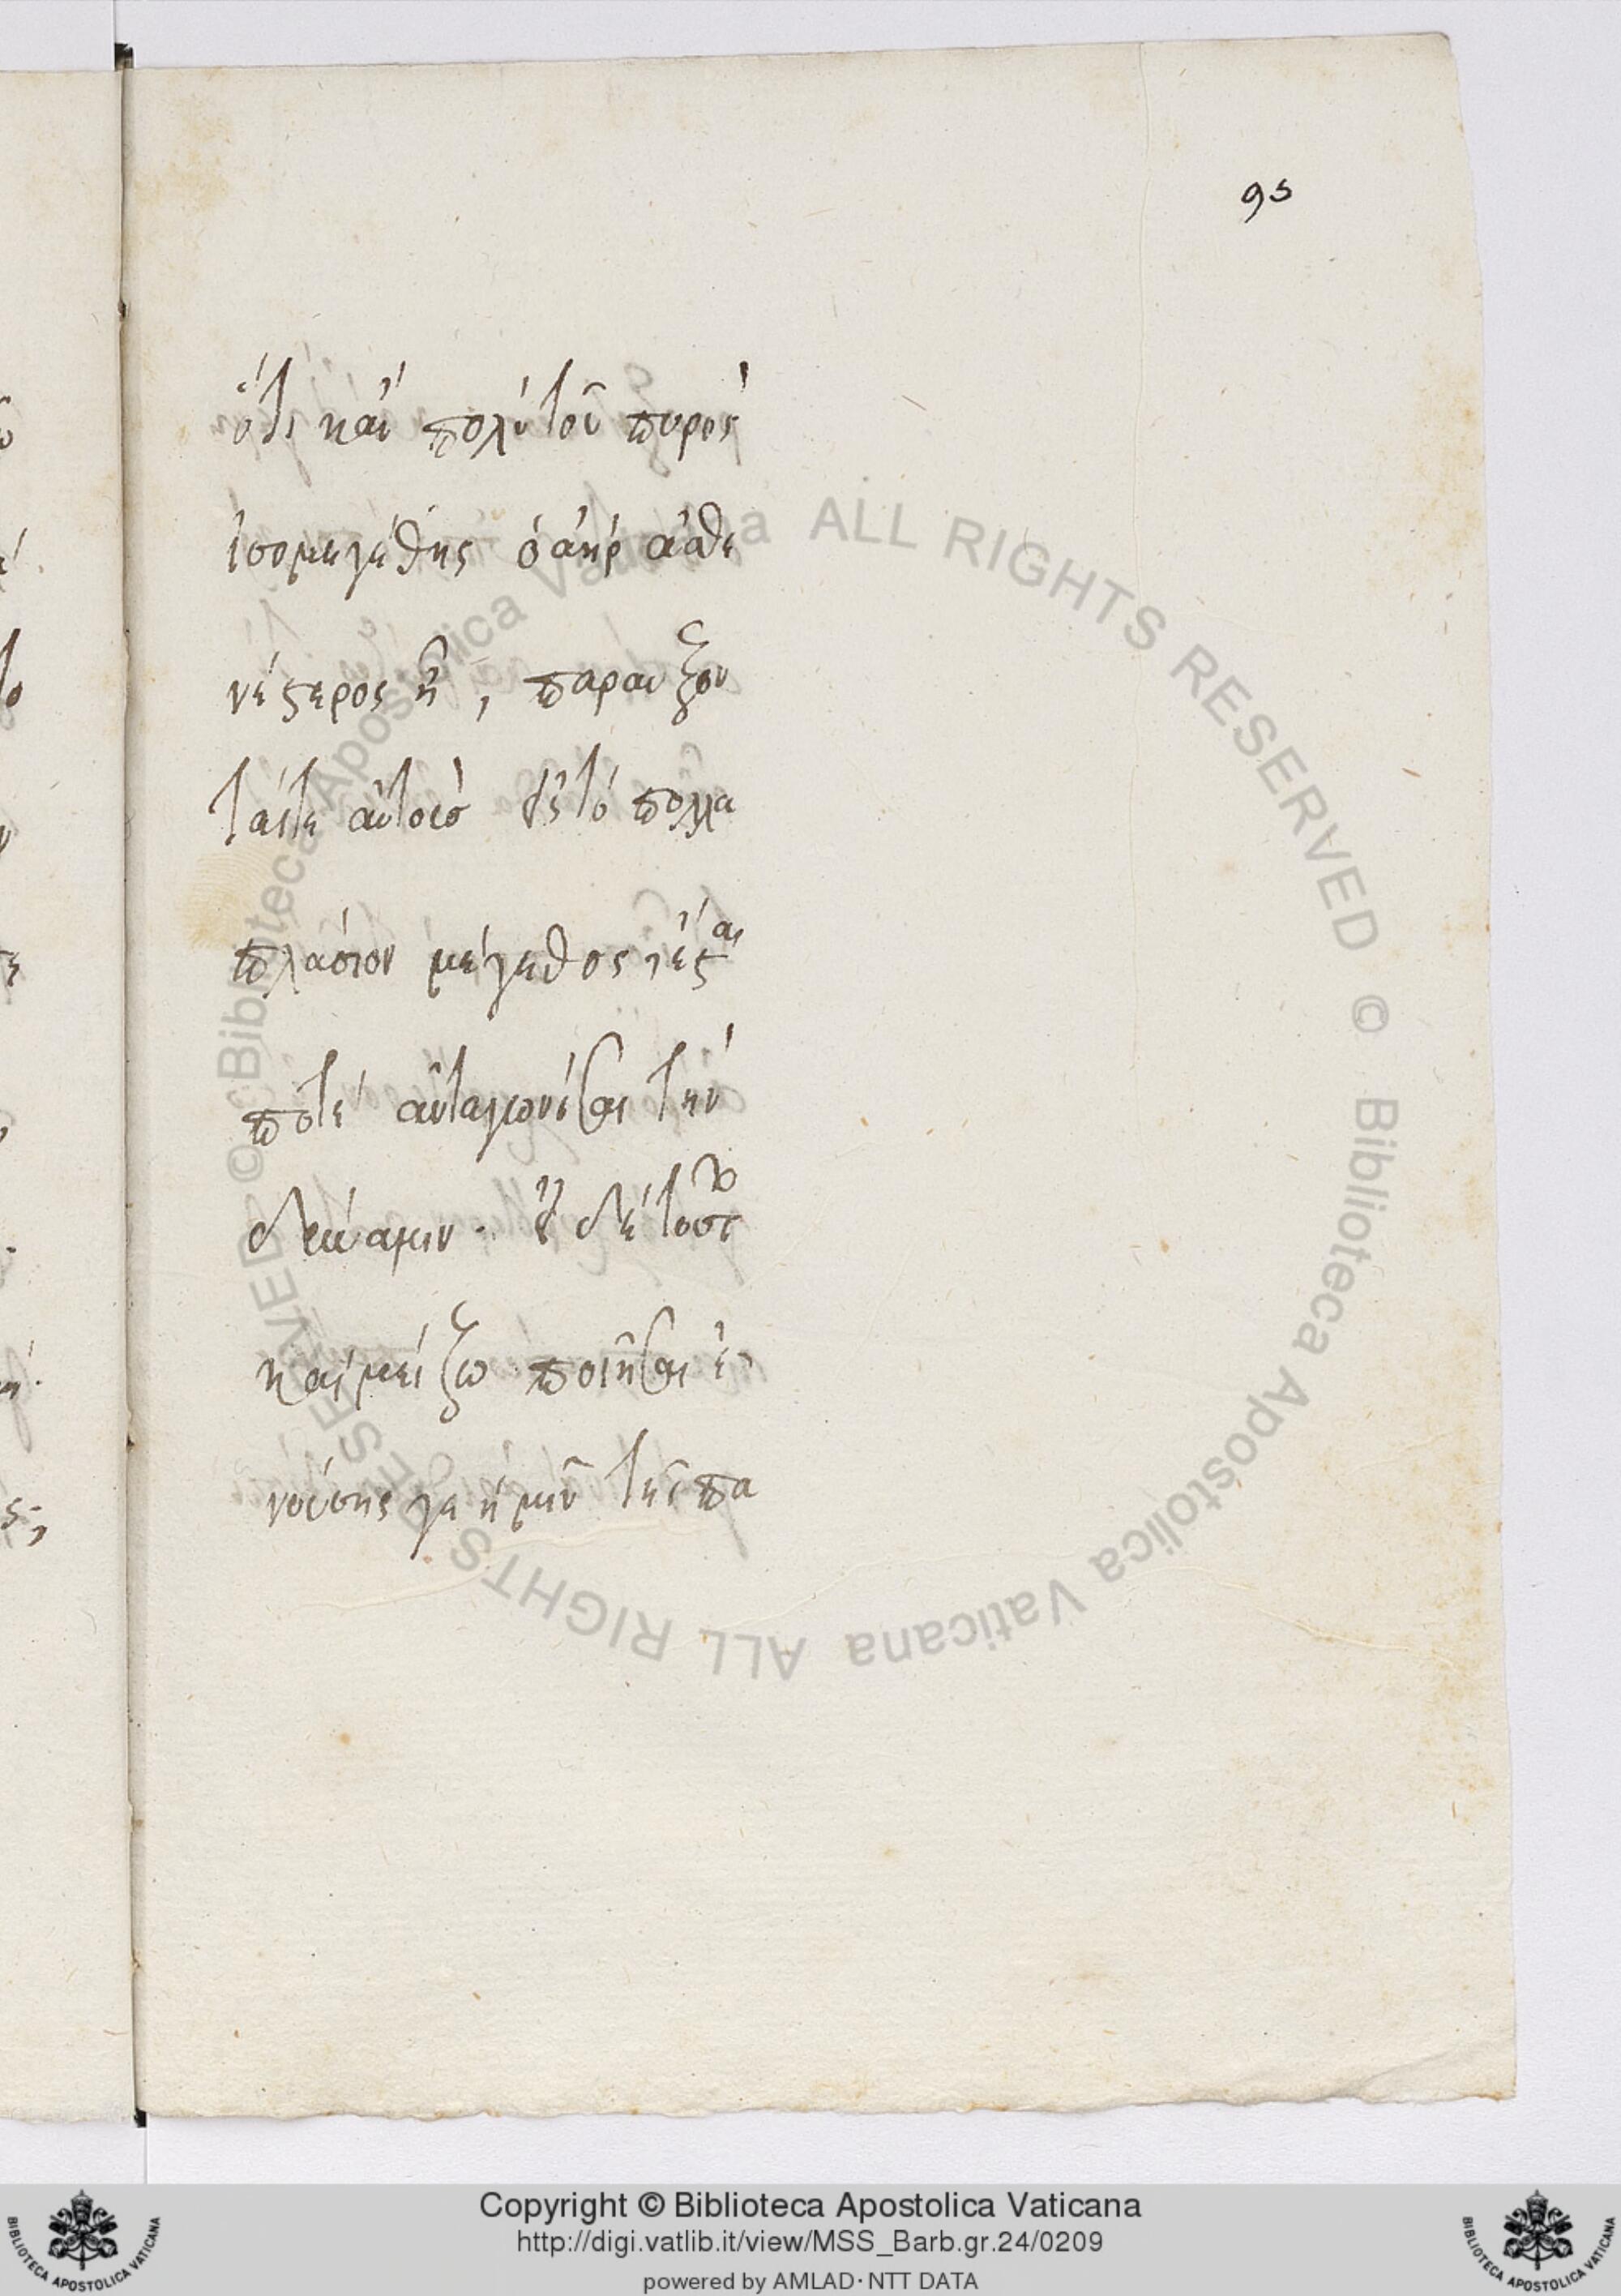 95
ὅτι κἂν πολὺ τοῦ πυρὸς
ἰσομεγέθης ὁ ἀὴρ ἀσθε
νέστερος ᾖ, παραυξου
πλάσιον μέγεθος
ποτὲ ἀνταγωνίσαι τὴν
δύναμιν. εἰ δὲ
καὶ μείζω ποιῆσαι
νούσης γε ἡμῖν τῆς πα
© Biblioteca Apostolica Vaticana ALL RIGHTS RESERVED © Biblioteca Apostolica Vaticana ALL RIGHTS RESERVED
Copyright © Biblioteca Apostolica Vaticana
http://digi.vatlib.it/view/MSS_Barb.gr.24/0209
powered by AMLAD · NTT DATA
BIBLIOTECA APOSTOLICA VATICANA
BIBLIOTECA APOSTOLICA VATICANA